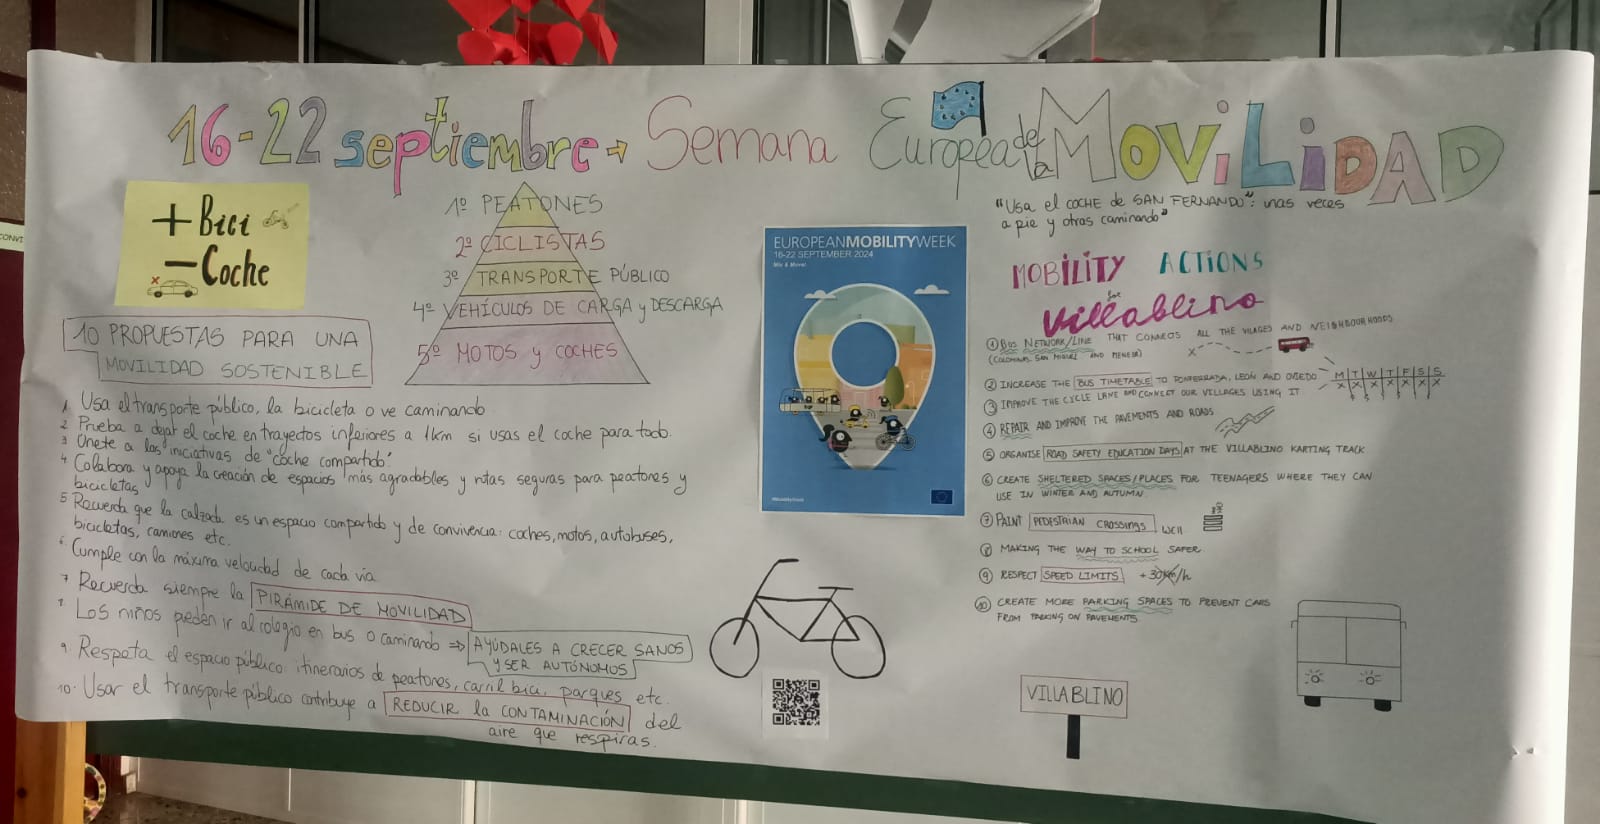 16-22 septiembre → Semana Europea de la MOVILIDAD
+Bici
-Coche
1º PEATONES
2º CICLISTAS
3º TRANSPORTE PÚBLICO
4º VEHÍCULOS DE CARGA y DESCARGA
5º MOTOS y COCHES
10 PROPUESTAS PARA UNA
MOVILIDAD SOSTENIBLE
1. Usa el transporte público, la bicicleta o ve caminando
2 Prueba a dejar el coche en trayectos inferiores a 1km si usas el coche para todo.
3 Únete a las iniciativas de "coche compartido".
4 Colabora y apoya la creación de espacios más agradables y rutas seguras para peatones y
bicicletas
5 Recuerda que la calzada es un espacio compartido y de convivencia: coches, motos, autobuses,
bicicletas, camiones etc.
6. Cumple con la máxima velocidad de cada vía
7 Recuerda siempre la PIRÁMIDE DE MOVILIDAD
8. Los niños pueden ir al colegio en bus o caminando ⇒ AYÚDALES A CRECER SANOS
Y SER AUTÓNOMOS
9. Respeta el espacio público: itinerarios de peatones, carril bici, parques etc.
10. Usar el transporte público contribuye a REDUCIR la CONTAMINACIÓN del
aire que respiras.
EUROPEANMOBILITYWEEK
16-22 SEPTEMBER 2024
Mix & Move!
#MobilityWeek
"Usa el COCHE de SAN FERNANDO": unas veces
a pie y otras caminando"
MOBILITY ACTIONS
for
Villablino
① BUS NETWORK/LINE THAT CONNECTS ALL THE VILAGES AND NEIGHBOURHOODS
(COLOMINAS, SAN MIGUEL AND
② INCREASE THE BUS TIMETABLE TO PONFERRADA, LEÓN AND OVIEDO
M T W T F S S
X X X X X X X
③ IMPROVE THE CYCLE LANE AND CONNECT OUR VILLAGES USING IT
④ REPAIR AND IMPROVE THE PAVEMENTS AND ROADS
⑤ ORGANISE ROAD SAFETY EDUCATION DAYS AT THE VILLABLINO KARTING TRACK
⑥ CREATE SHELTERED SPACES/PLACES FOR TEENAGERS WHERE THEY CAN
USE IN WINTER AND AUTUMN
⑦ PAINT PEDESTRIAN CROSSINGS WELL
⑧ MAKING THE WAY TO SCHOOL SAFER
⑨ RESPECT SPEED LIMITS +30km/h
⑩ CREATE MORE PARKING SPACES TO PREVENT CARS
FROM PARKING ON PAVEMENTS
VILLABLINO